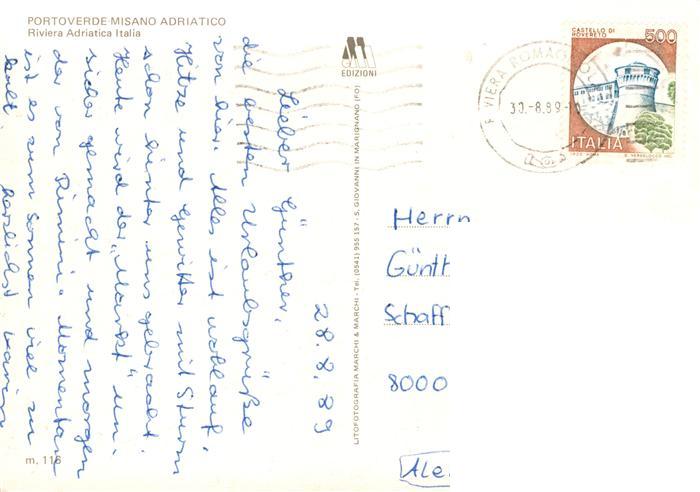 PORTOVERDE-MISANO ADRIATICO
Riviera Adriatica Italia
28.8.89
Lieber Günther,
die besten Urlaubsgrüße
von hier. Alles ist wohlauf,
Hitze und Gewitter mit Sturm
schon hinter uns gebracht.
Heute wird der "Markt" un-
sicher gemacht und morgen
der von Rimini. Momentan
ist es zum Sonnen viel zu
kalt. Herzlichst Karin
m. 116
EDIZIONI
LITOFOTOGRAFIA MARCHI & MARCHI - Tel. (0541) 955 157 - S. GIOVANNI IN MARIGNANO (FO)
RIVIERA ROMAGNOLA
30.-8.89
CASTELLO DI ROVERETO
500
ITALIA
Herrn
Günth
Schaff
8000
Ale